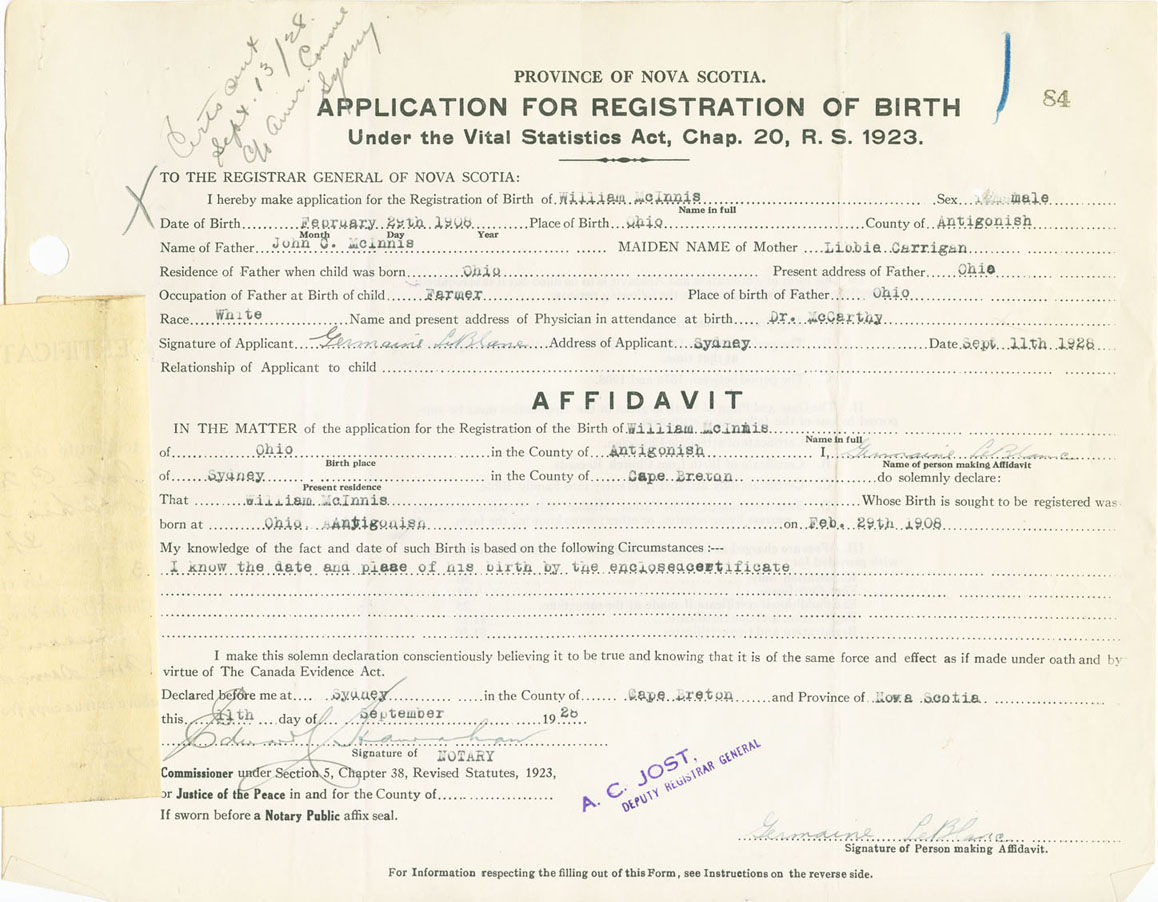 Certs out
Sept. 13/28
c/o Amer. Consul
Sydney.
84
PROVINCE OF NOVA SCOTIA.
APPLICATION FOR REGISTRATION OF BIRTH
Under the Vital Statistics Act, Chap. 20, R. S. 1923.
X TO THE REGISTRAR GENERAL OF NOVA SCOTIA:
I hereby make application for the Registration of Birth of William McInnis Sex male
Name in full
Date of Birth February 29th 1908 Place of Birth Ohio County of Antigonish
Month Day Year
Name of Father John C. McInnis MAIDEN NAME of Mother Libbie Carrigan
Residence of Father when child was born Ohio Present address of Father Ohio
Occupation of Father at Birth of child Farmer Place of birth of Father Ohio
Race White Name and present address of Physician in attendance at birth Dr. McCarthy
Signature of Applicant Germaine LeBlanc Address of Applicant Sydney Date Sept 11th 1928
Relationship of Applicant to child
AFFIDAVIT
IN THE MATTER of the application for the Registration of the Birth of William McInnis
Name in full
of Ohio in the County of Antigonish I, Germaine LeBlanc
Birth place Name of person making Affidavit
of Sydney in the County of Cape Breton do solemnly declare:
Present residence
That William McInnis Whose Birth is sought to be registered was
born at Ohio, Antigonish on Feb. 29th 1908
My knowledge of the fact and date of such Birth is based on the following Circumstances :—
I know the date and plase of his birth by the enclosedcertificate
I make this solemn declaration conscientiously believing it to be true and knowing that it is of the same force and effect as if made under oath and by
virtue of The Canada Evidence Act.
Declared before me at Sydney in the County of Cape Breton and Province of Nova Scotia
this 11th day of September 1928
Edward Hanrahan
Signature of NOTARY
Commissioner under Section 5, Chapter 38, Revised Statutes, 1923,
or Justice of the Peace in and for the County of
If sworn before a Notary Public affix seal.
A. C. JOST,
DEPUTY REGISTRAR GENERAL
Germaine LeBlanc
Signature of Person making Affidavit.
For Information respecting the filling out of this Form, see Instructions on the reverse side.